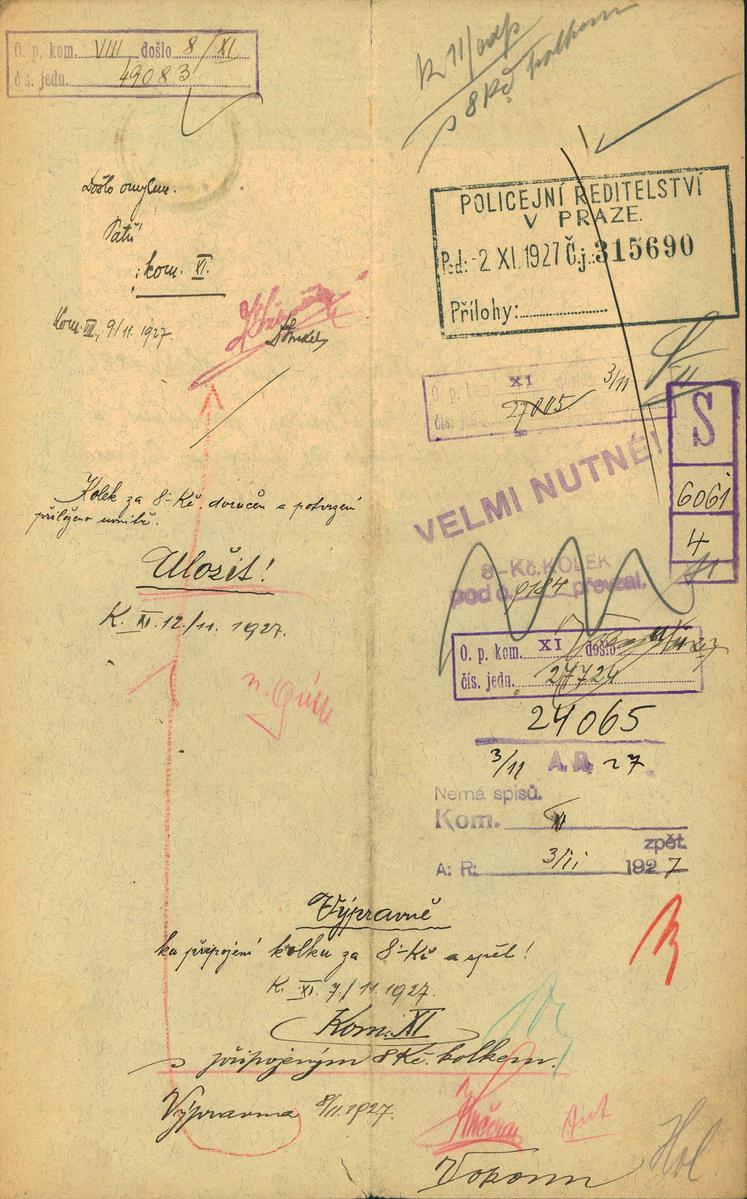 O. p. kom. VIII došlo 8/XI
čís. jedn. 49083
K 11/
s 8 Kč kolkem
Došlo omylem.
Patří
kom. XI.
Kom. VIII, 9/11 1927.
POLICEJNÍ ŘEDITELSTVÍ
V PRAZE.
Pod: -2 XI. 1927 Č.j.: 315690
Přílohy:
O. p. kom. XI došlo 3/11
čís. 27005
VELMI NUTNÉ!
S
6061
4
11
Kolek za 8·- Kč. doručen a potvrzení
přiloženo uvnitř.
Uložit!
K. XI. 12/11. 1927.
8-Kč. KOLEK
pod č. 0184 převzal.
O. p. kom. XI došlo
čís. jedn. 27724
24065
3/11 A. R. 27
Nemá spisů.
Kom. XI
zpět.
A: R: 3/11 1927
Výpravně
ku připojení kolku za 8·- Kč a zpět!
K. XI. 7/11. 1927.
Kom. XI
s připojeným 8 Kč. kolkem.
Výpravna 8/11. 1927.